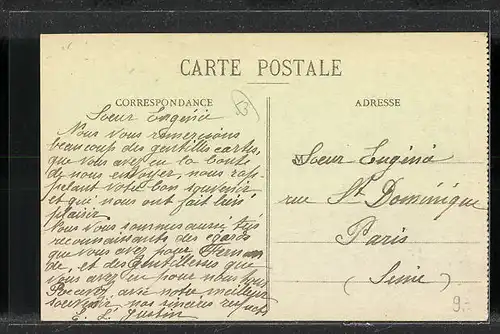 CARTE POSTALE
CORRESPONDANCE
ADRESSE
53
Soeur Eugénie
Nous vous remercions
beaucoup des gentilles cartes,
que vous avez eu la bonté
de nous envoyer, nous rap-
pelant votre bon souvenir
et qui nous ont fait bien
plaisir.
Nous vous sommes aussi très
reconnaissants des égards
que vous avez pour Fernan
de, et des gentillesses que
vous avez eu pour nous tous
Recevez avec notre meilleur
souvenir nos sincères respects
E. Justin
M Soeur Eugénie
rue St Dominique
Paris
(Seine)
9.-